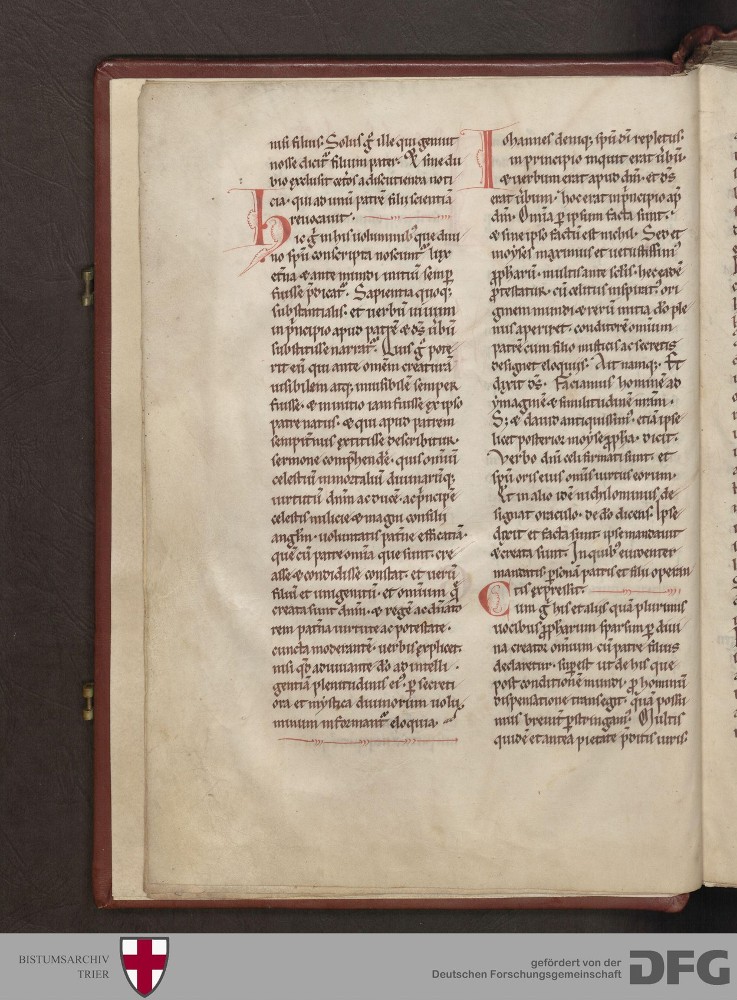 nisi filius. Solus g̃ ille qui genuit
nosse dicit᷑ filium pater. Et sine du
bio exclusit cetos a discutienda noti
cia. qui ad unũ patrẽ filii scientiã
revocavit.
Hic g̃ in his voluminib; que divi
no spũ conscripta noscunt᷑ lux
etñа & ante mundi initiũ semp̃
fuisse p̃dicat᷑. Sapientia quoq;
substantialis. et verbũ vivum
in p̃ncipio apud patrẽ & ds̃ ũbũ
substitisse narrat᷑. Quis g̃ pote
rit eũ qui ante om̃em creaturã
visibilem atq; invisibilẽ semper
fuisse. & in initio iam fuisse ex ipso
patre natus. & qui apud patrem
sempit̃nus extitisse describitur.
sermone comp̃hendẽ. quis om̃iũ
celestiũ inmortaliũ divinarũq;
virtutũ dñm ac ducẽ. ac p̃ncipẽ
celestis milicie & magni consilii
anglm̃. voluntatis pat̃ne efficaciã.
que cũ patre om̃ia que sunt. cre
asse & condidisse constat. et verũ
filiũ et unigenitũ. et omnium q̃
creata sunt dñm. & regẽ ac dñato
rem pat̃na virtute ac potestate.
cuncta moderantẽ. verbis explicet.
nisi qd̃ adiuvante dõ ad intelli
gentiã plenitudinis ei᷒. p̃ secreti
ora et mystica divinorum volu
minum informam᷑ eloquia.
Iohannes deniq; spũ dĩ repletus.
in principio inquit erat ũbũ.
& verbum erat apud dm̃. et ds̃
erat ũbum. hoc erat in p̃ncipio ap̃
dm̃. Om̃ia p̃ ipsum facta sunt.
& sine ipso factũ est nichil. Sed et
moyses maximus et vetustissim᷒
p̃phar̃ũ. multis ante sc̃lis. hec eadẽ
p̃testatur. cũ celitus inspirat᷒. ori
ginem mundi & rerũ initia dõ ple
nus aperiret. conditorẽ omium
patrẽ cum filio misticis ac secretis
designet eloquiis. Ait namq; Et
dixit ds̃. Faciamus hominẽ ad
ymaginẽ & similitudinẽ nr̃am.
S; & dauid antiquissim᷒. etiã ipse
licet posterior moyse p̃pha. dicit.
Verbo dñi celi firmati sunt. et
spũ oris eius om̃is virtus eorum.
Et in alio idẽ nichilominus de
signat oraculo. de dõ dicens. Ipse
dixit et facta sunt. ipse mandavit
& creata sunt. In quib; evidenter
mandatis p̃sonã patris et filii operan
tis expressit.
Cum g̃ his et aliis quã plurimis
vocibus p̃phar̃um sparsim p̃ divi
na creator omium cũ patre filius
declaretur. sup̃est ut de his que
post conditionẽ mundi. p̃ hominũ
dispensatione transegit. quã possu
mus brevit̃ p̃stringam᷒. Multis
quidẽ et antea pietate p̃ditis viris.
BISTUMSARCHIV
TRIER
gefördert von der
Deutschen Forschungsgemeinschaft
DFG